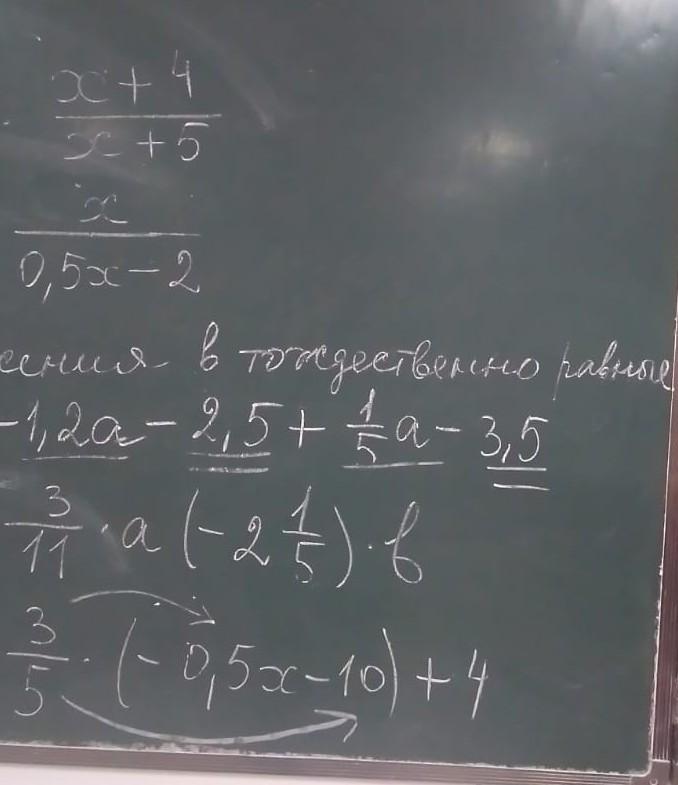 x + 4
x + 5
x
0,5x - 2
в тождественно равные
-1,2a - 2,5 + 1/5 a - 3,5
3/11 · a (-2 1/5) · b
3/5 · (-0,5x - 10) + 4